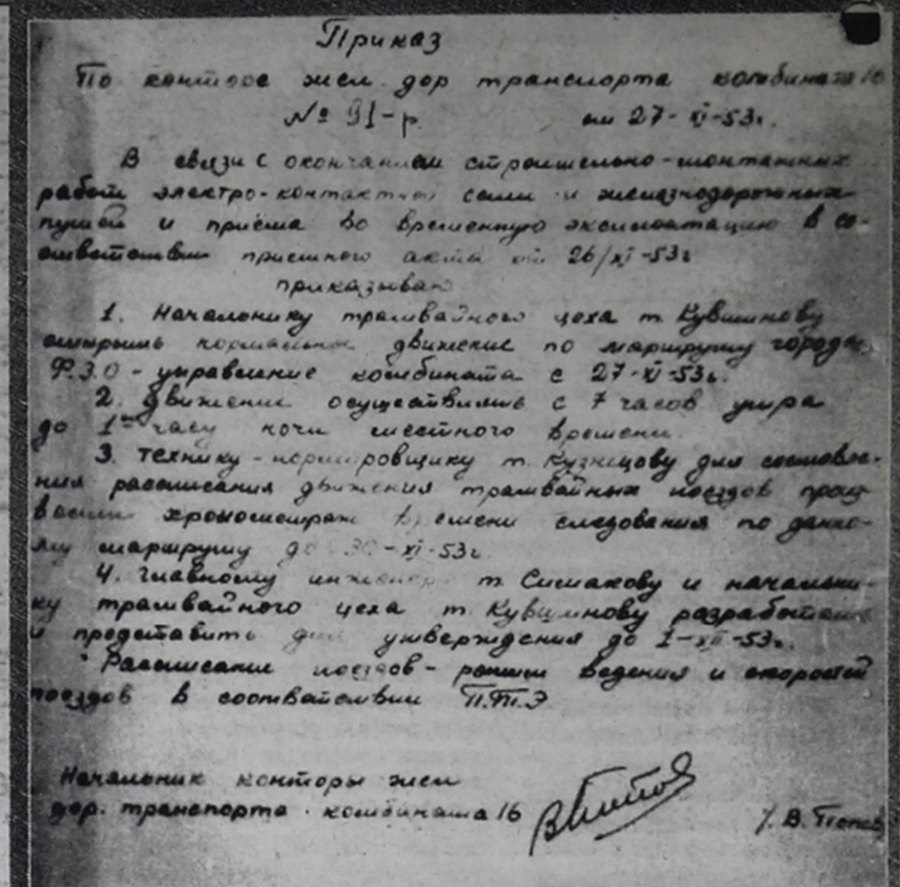 Приказ
По конторе жел. дор транспорта комбината 16
№ 91-р. от 27-XI-53г.
В связи с окончанием строительно-монтажных
работ электро-контактной сети и железнодорожных
путей и приёма во временную эксплоатацию в со-
ответствии приемного акта от 26/XI-53г
приказываю
1. Начальнику трамвайного цеха т. Кувшинову
открыть нормальное движение по маршруту города
Ф.З.О - управление комбината с 27-XI-53г.
2. Движение осуществлять с 7 часов утра
до 1го часу ночи местного времени.
3. Технику-нормировщику т. Кузнецову для составле-
ния расписания движения трамвайных поездов произ-
вести хронометраж времени следования по данно-
му маршруту до 30-XI-53г.
4. Главному инженеру т. Симакову и начальни-
ку трамвайного цеха т. Кувшинову разработать
и представить для утверждения до 1-XII-53г.
Расписание поездов - режим ведения и скоростей
поездов в соответствии П.Т.Э
Начальник конторы жел
дор. транспорта комбината 16 В. Попов